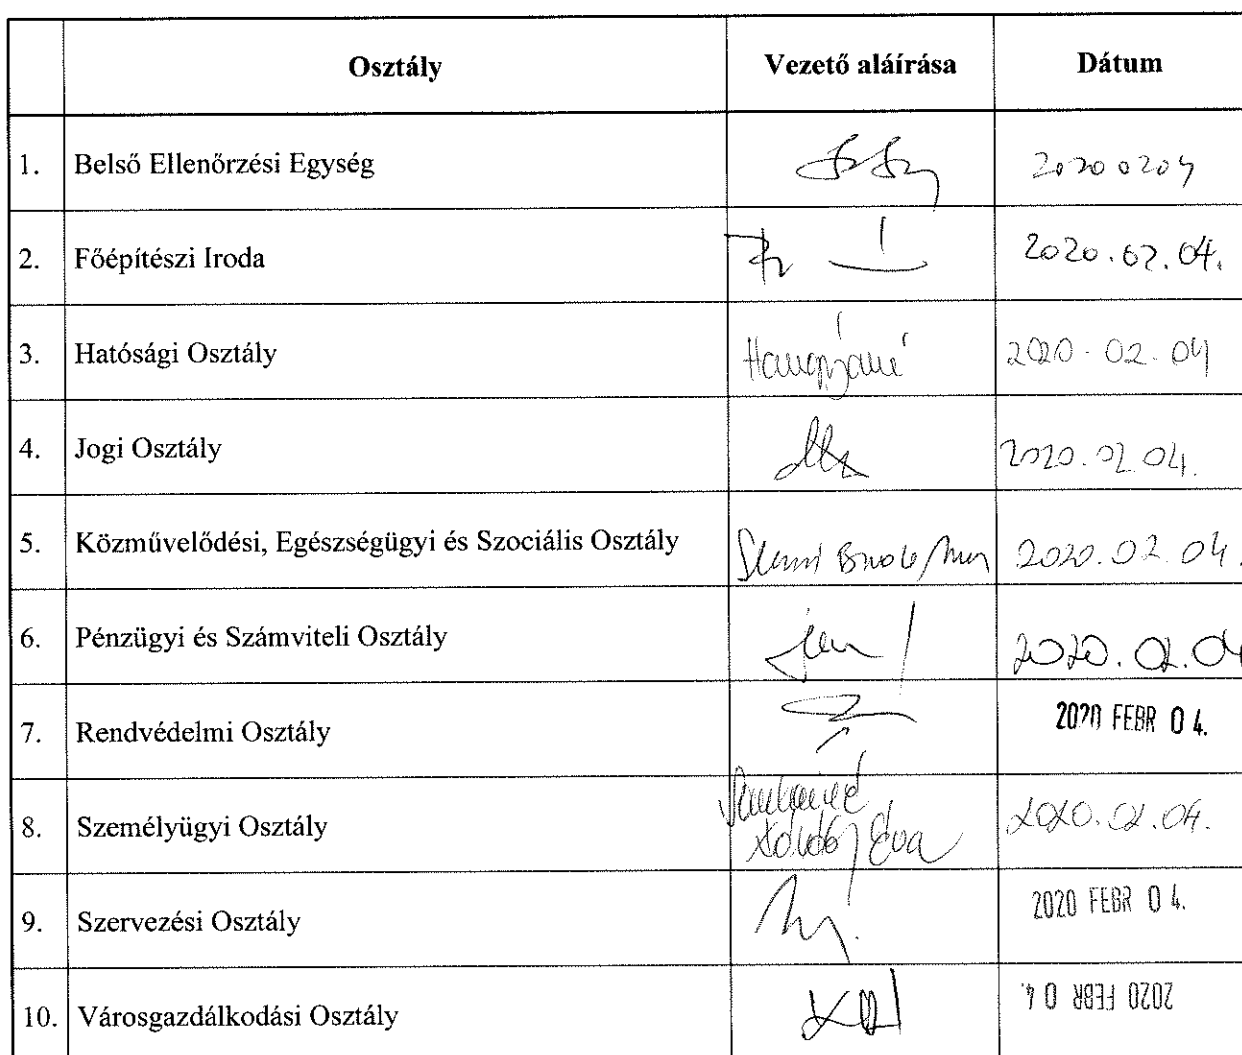 Osztály Vezető aláírása Dátum
1. Belső Ellenőrzési Egység 20200204
2. Főépítészi Iroda 2020.02.04.
3. Hatósági Osztály 2020.02.04
4. Jogi Osztály 2020.02.04.
5. Közművelődési, Egészségügyi és Szociális Osztály 2020.02.04.
6. Pénzügyi és Számviteli Osztály 2020.02.04
7. Rendvédelmi Osztály 2020 FEBR 04.
8. Személyügyi Osztály Éva 2020.02.04.
9. Szervezési Osztály 2020 FEBR 04.
10. Városgazdálkodási Osztály 2020 FEBR 04.